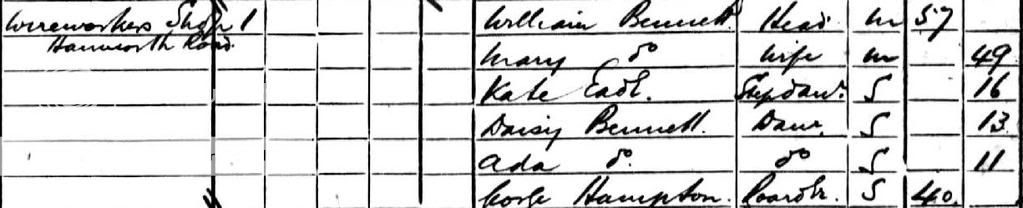 Wireworkers Shop 1 William Bennett Head M 57
Hanworth Road. Mary do Wife M 49
Kate Eade. Stepdaur. S 16
Daisy Bennett. Daur. S 13
Ada do. do S 11
George Hampton. Boarder. S 40.